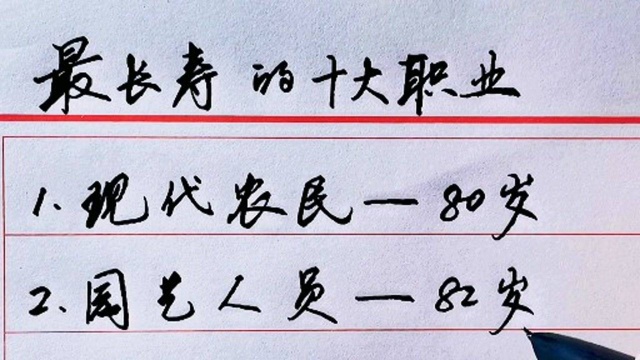 最长寿的十大职业
1.现代农民—80岁
2.园艺人员—82岁